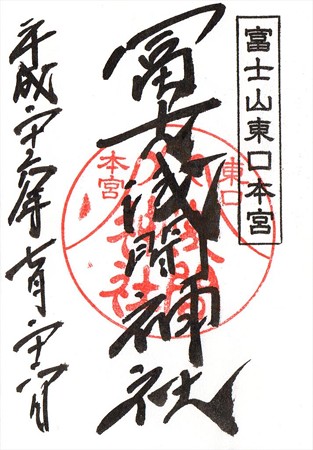 富士山東口本宮
冨士浅間神社
平成二十六年七月二十六日
東口
本宮